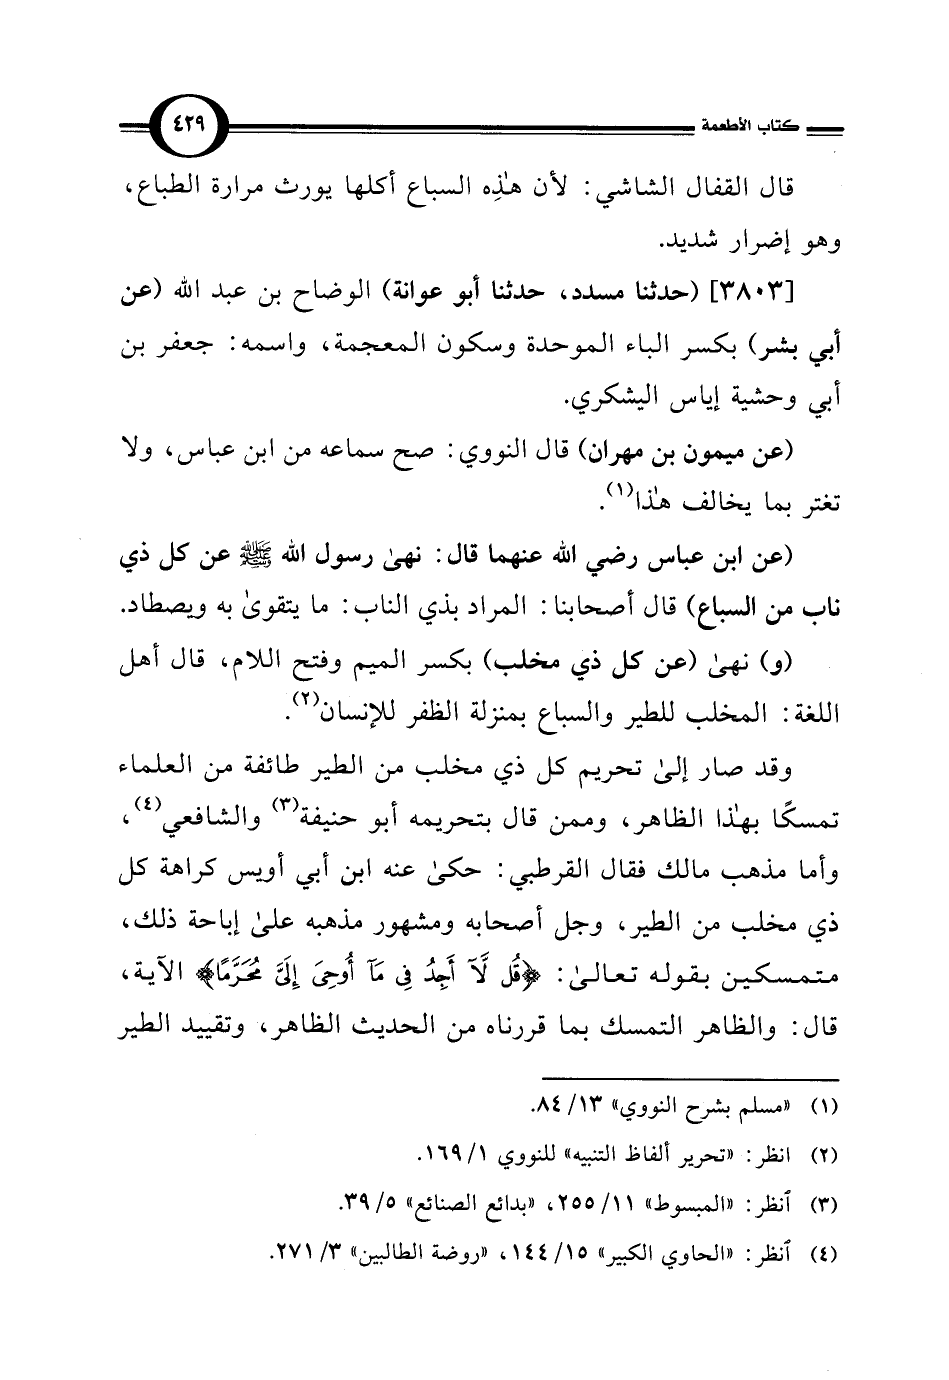 كتاب الأطعمة ٤٢٩
قال القفال الشاشي: لأن هذِه السباع أكلها يورث مرارة الطباع،
وهو إضرار شديد.
[٣٨٠٣] (حدثنا مسدد، حدثنا أبو عوانة) الوضاح بن عبد الله (عن
أبي بشر) بكسر الباء الموحدة وسكون المعجمة، واسمه: جعفر بن
أبي وحشية إياس اليشكري.
(عن ميمون بن مهران) قال النووي: صح سماعه من ابن عباس، ولا
تغتر بما يخالف هذا(١).
(عن ابن عباس رضي الله عنهما قال: نهىٰ رسول الله ﷺ عن كل ذي
ناب من السباع) قال أصحابنا: المراد بذي الناب: ما يتقوىٰ به ويصطاد.
(و) نهىٰ (عن كل ذي مخلب) بكسر الميم وفتح اللام، قال أهل
اللغة: المخلب للطير والسباع بمنزلة الظفر للإنسان(٢).
وقد صار إلىٰ تحريم كل ذي مخلب من الطير طائفة من العلماء
تمسكًا بهٰذا الظاهر، وممن قال بتحريمه أبو حنيفة(٣) والشافعي(٤)،
وأما مذهب مالك فقال القرطبي: حكىٰ عنه ابن أبي أويس كراهة كل
ذي مخلب من الطير، وجل أصحابه ومشهور مذهبه علىٰ إباحة ذلك،
متمسكين بقوله تعالىٰ: ﴿قُل لَّآ أَجِدُ فِى مَآ أُوحِىَ إِلَىَّ مُحَرَّمًا﴾ الآية،
قال: والظاهر التمسك بما قررناه من الحديث الظاهر، وتقييد الطير
(١) «مسلم بشرح النووي» ١٣/ ٨٤.
(٢) انظر: «تحرير ألفاظ التنبيه» للنووي ١/ ١٦٩.
(٣) ٱنظر: «المبسوط» ١١/ ٢٥٥، «بدائع الصنائع» ٥/ ٣٩.
(٤) ٱنظر: «الحاوي الكبير» ١٥/ ١٤٤، «روضة الطالبين» ٣/ ٢٧١.